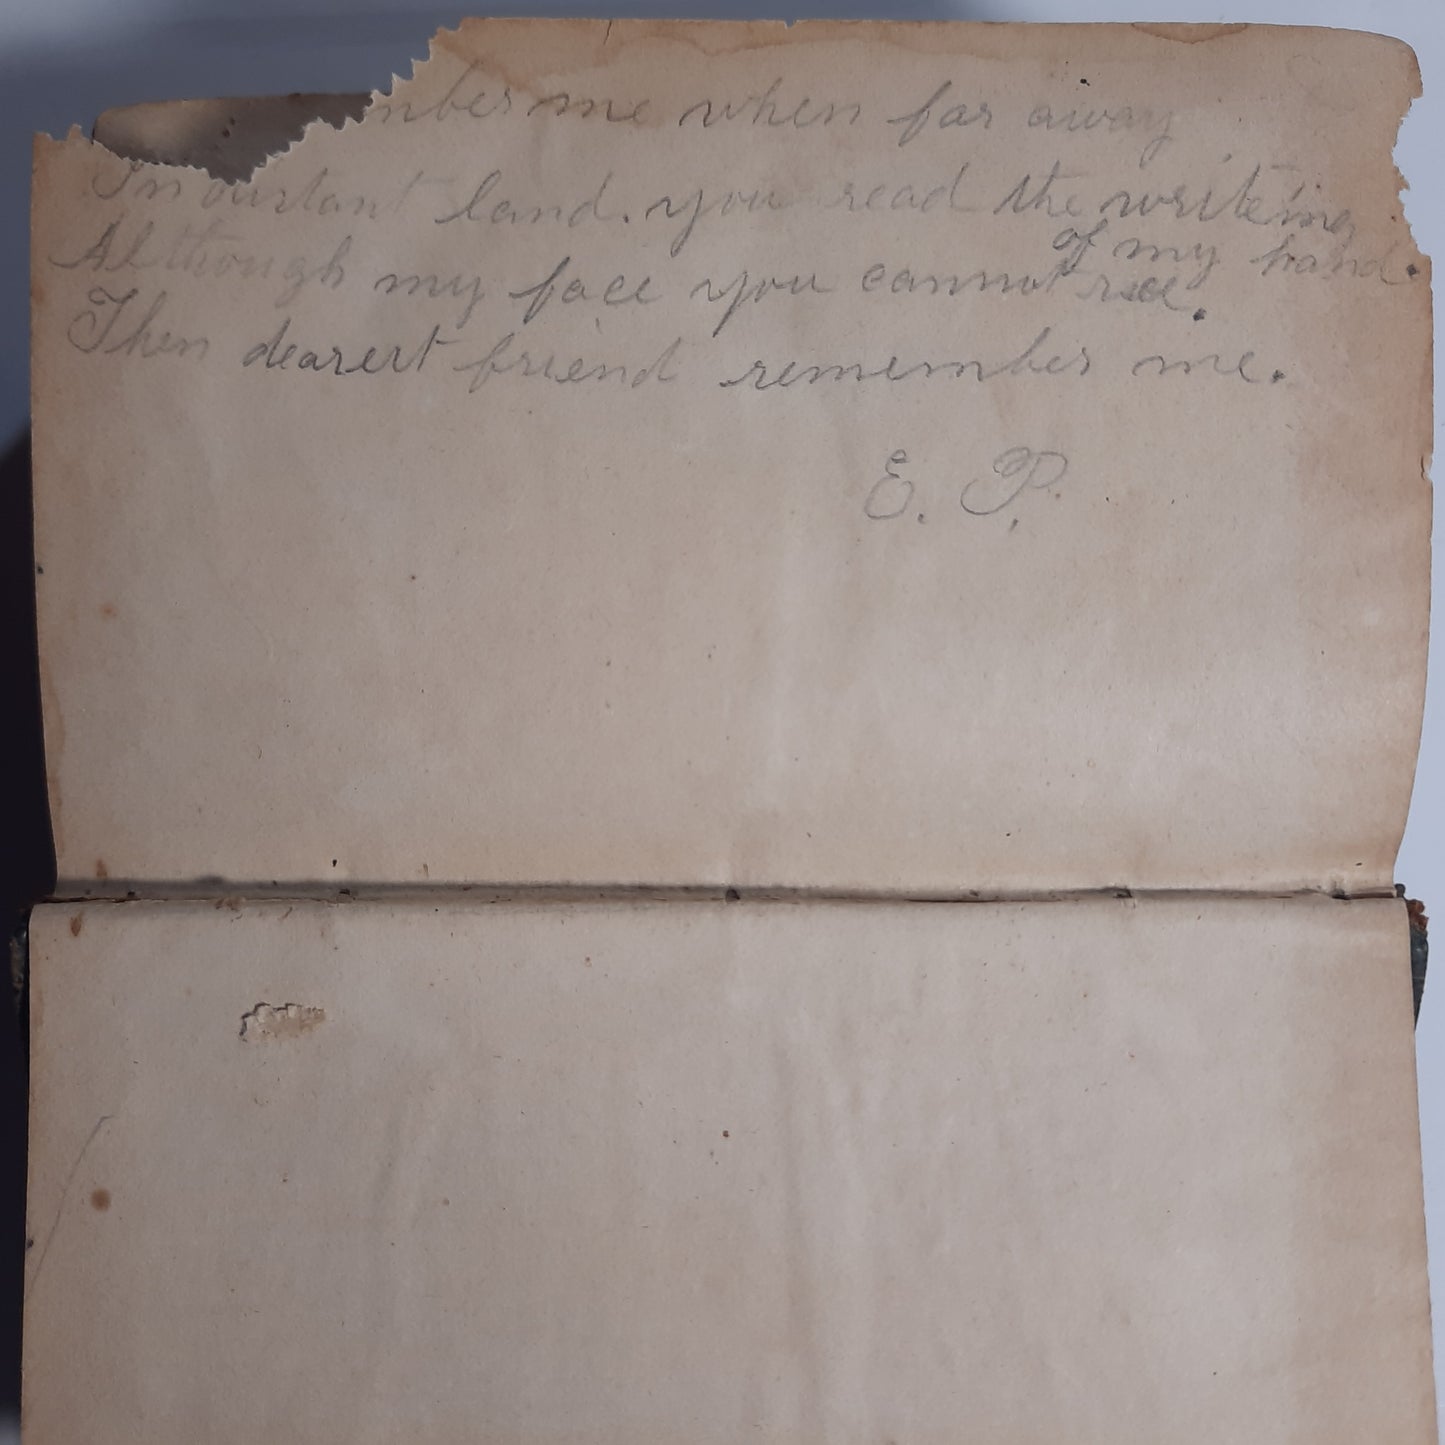 mber me when far away
In distant land. you read the writeing
of my hand.
Although my face you cannot see.
Then dearest friend remember me.
E. P.